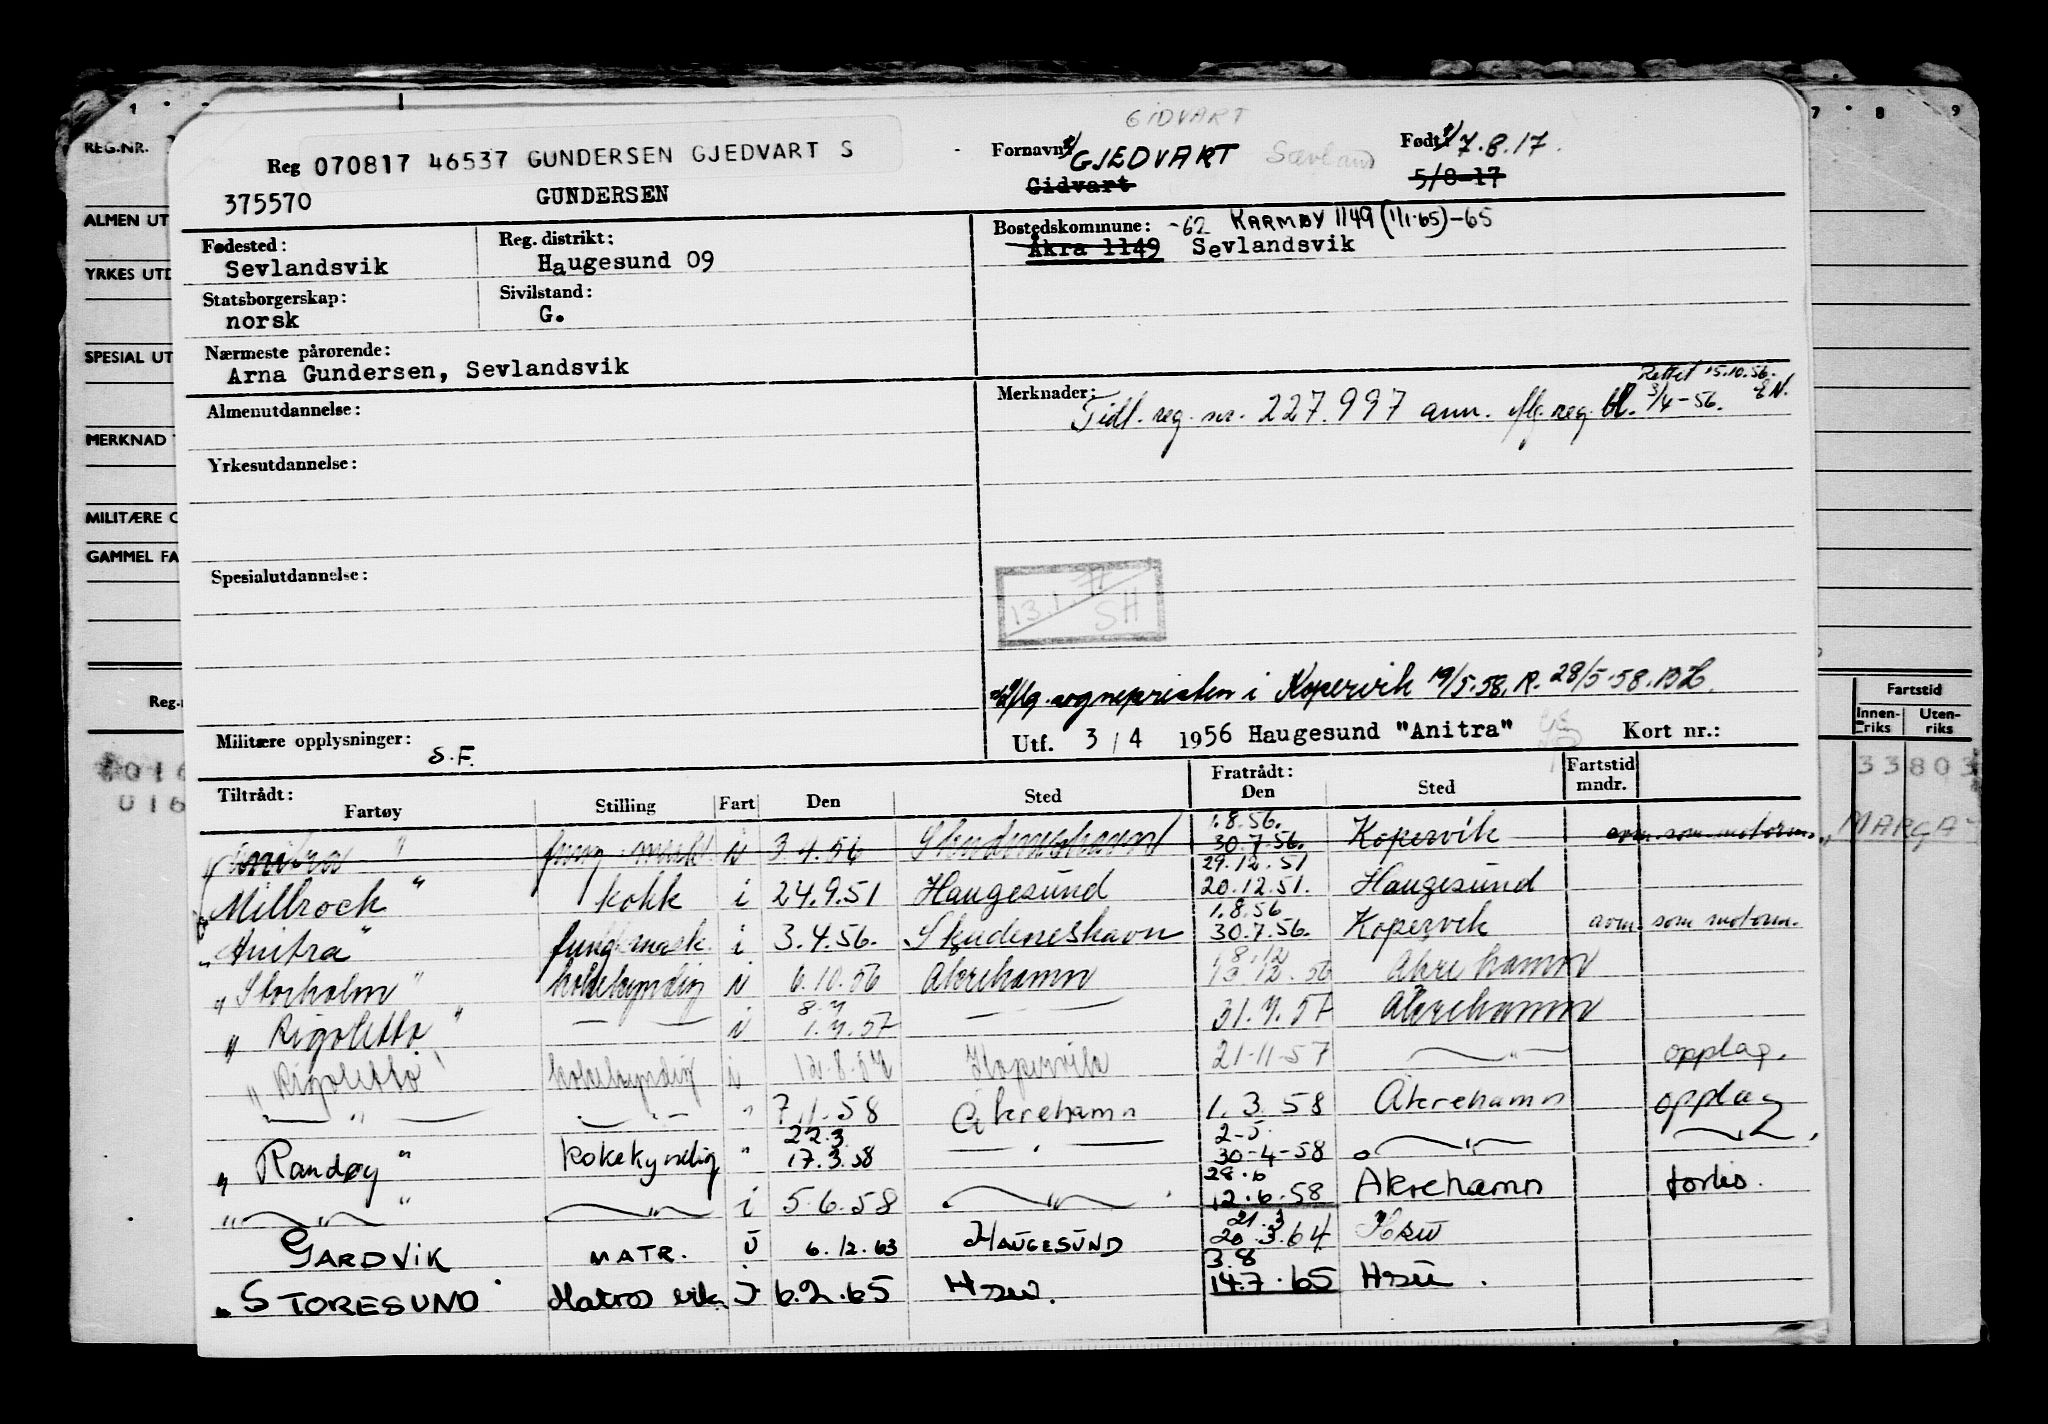 GIDVART
Reg 070817 46537 GUNDERSEN GJEDVART S
Fornavn: GJEDVART Sævland
Født: 7.8.17.
375570 GUNDERSEN
Gidvart
5/8-17
Fødested: Sevlandsvik
Reg. distrikt: Haugesund 09
Bostedskommune: -62 KARMØY 1149 (1/1-65)-65
Åkra 1149 Sevlandsvik
Statsborgerskap: norsk
Sivilstand: G.
Nærmeste pårørende:
Arna Gundersen, Sevlandsvik
Almenutdannelse:
Merknader:
Rettet 15.10.56. EN.
Tidl. reg. nr. 227.997 ann. iflg. reg. bl. 3/4-56.
Yrkesutdannelse:
Spesialutdannelse:
13.1.71
SH
iflg. sognepresten i Kopervik 19/5.58. R. 28/5-58.
Militære opplysninger: S.F.
Utf. 3/4 1956 Haugesund "Anitra" Kort nr.:
Tiltrådt: Fartøy Stilling Fart Den Sted Fratrådt: Den Sted Fartstid mndr.
1.8.56.
"Anitra" fung. mask. i 3.4.56 Skudeneshavn 30.7.56. Kopervik avm. som motorm.
29.12.51
Millrock" kokk i 24.9.51 Haugesund 20.12.51. Haugesund
1.8.56
"Anitra" fung. mask. i 3.4.56. Skudeneshavn 30.7.56. Kopervik avm. som motorm.
18.12
"Storholm" kokkekyndig i 6.10.56 Åkrehamn 13.12.56 Åkrehamn
8.7
"Rigoletto" — — i 1.7.57 — — 31.7.57 Åkrehamn
"Rigoletto" kokekyndig i 12.8.57 Kopervik 21-11-57 — " — opplag.
— " — — " — " 7.1.58 Åkrehamn 1.3.58 Åkrehamn opplag
22.3. 2-5.
"Randøy" kokekyndig " 17.3.58 — " — 30-4-58 — " — — " —
28.6
" — " — " — " — i 5.6.58 — " — 12.6.58 Åkrehamn forlis.
21.3
GARDVIK MATR. U 6.12.63 HAUGESUND 20.3.64 Hsu
3.8
"STORESUND Matros i 6.2.65 Hsu. 14.7.65 Hsu.
1 7 8 9
REG.NR.
ALMEN UT
YRKES UTD
SPESIAL UT
MERKNAD
MILITÆRE O
GAMMEL FA
Reg.
Fartstid
Innen-riks Uten-riks
016
33803
016
MARGA